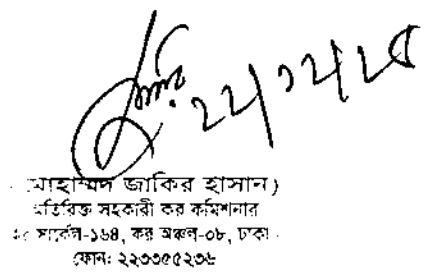 ২২/১২/২৫
মোহাম্মদ জাকির হাসান)
অতিরিক্ত সহকারী কর কমিশনার
সার্কেল-১৬৪, কর অঞ্চল-০৮, ঢাকা
ফোন: ২২৩৩৫৫২৩৬